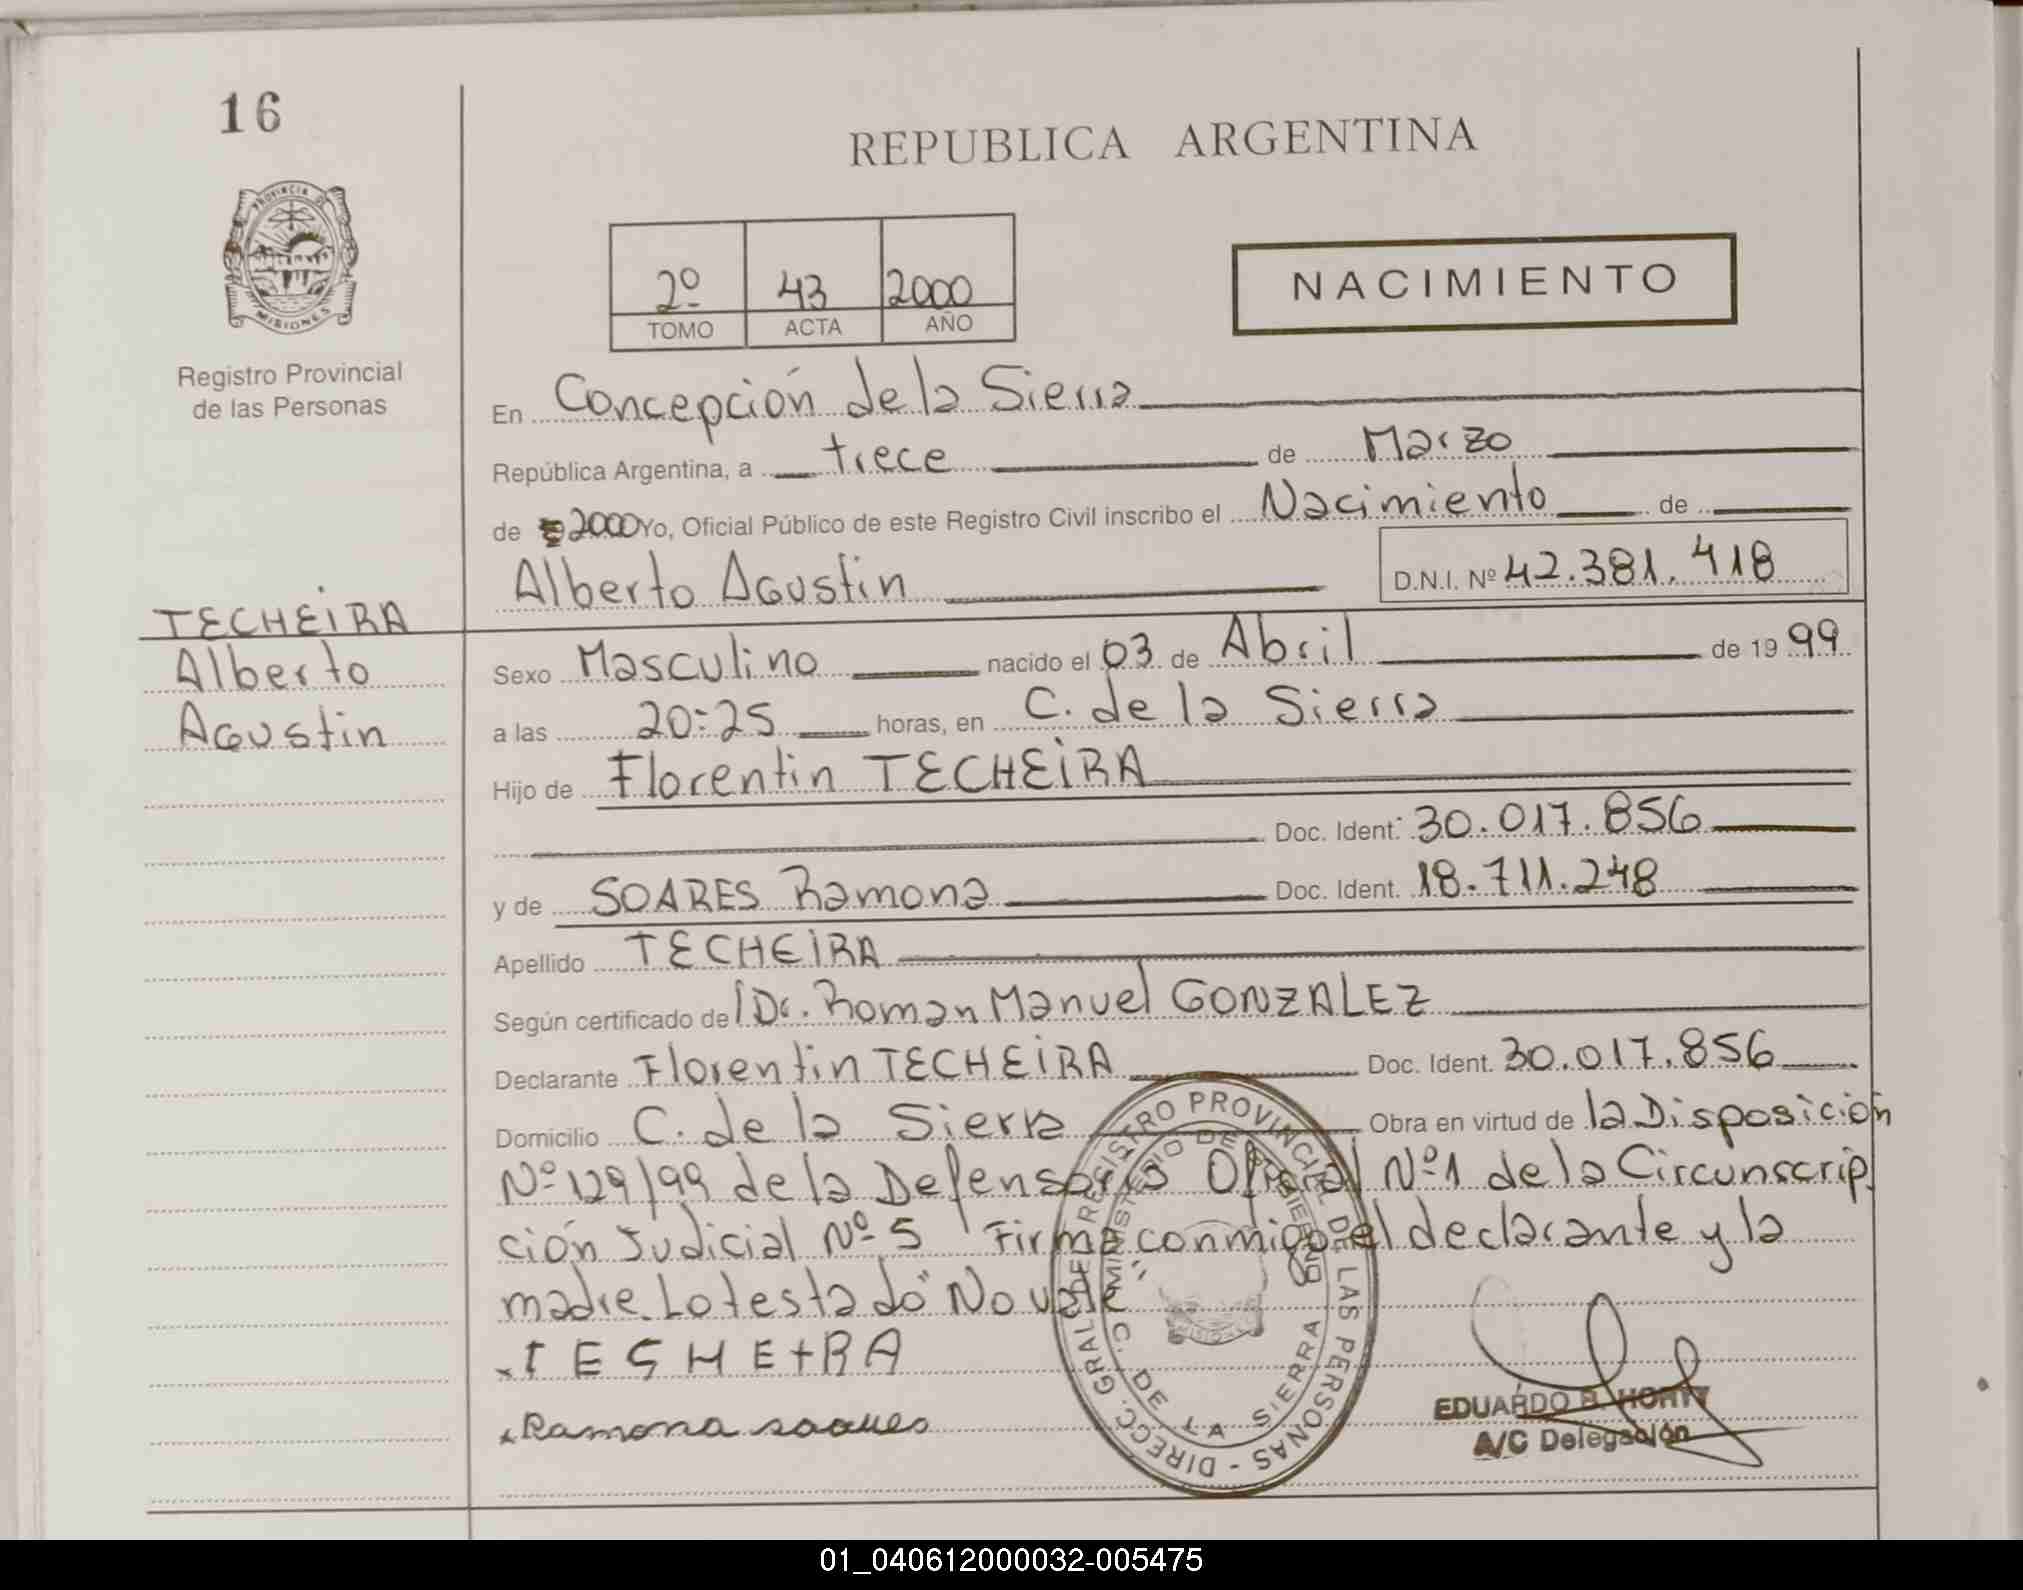 16
REPUBLICA ARGENTINA
PROVINCIA DE
MISIONES
Registro Provincial
de las Personas
2º 43 2000
TOMO ACTA AÑO
NACIMIENTO
En Concepción de la Sierra
República Argentina, a trece de Marzo
de 2000 Yo, Oficial Público de este Registro Civil inscribo el Nacimiento de
Alberto Agustin D.N.I. Nº 42.381.418
TECHEIRA
Alberto
Agustin
Sexo Masculino nacido el 03 de Abril de 19 99
a las 20:25 horas, en C. de la Sierra
Hijo de Florentin TECHEIRA
Doc. Ident. 30.017.856
y de SOARES Ramona Doc. Ident. 18.711.248
Apellido TECHEIRA
Según certificado de l Dr. Roman Manuel GONZALEZ
Declarante Florentin TECHEIRA Doc. Ident. 30.017.856
Domicilio C. de la Sierra Obra en virtud de la Disposición
Nº 129/99 de la Defensoria Oficial Nº 1 de la Circunscrip
ción Judicial Nº 5 Firma conmigo el declarante y la
madre. Lo testado "No vale"
TESHEIRA
Ramona soares
DIRECC. GRAL. DE REGISTRO PROVINCIAL DE LAS PERSONAS -
MINISTERIO DE GOBIERNO
C. DE LA SIERRA
EDUARDO R. HORTT
A/C Delegación
01_040612000032-005475